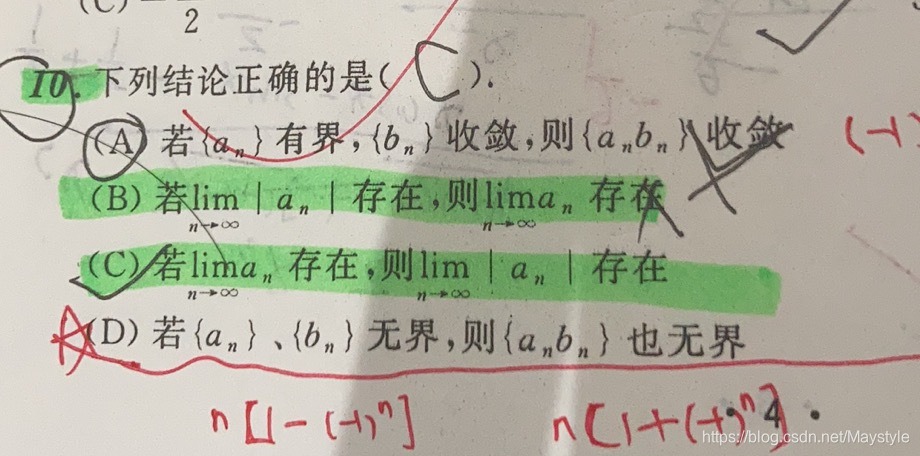 2
10. 下列结论正确的是( C ).
(A) 若{aₙ}有界,{bₙ}收敛,则{aₙbₙ}收敛 (-1)
(B) 若lim|aₙ|存在,则lim aₙ 存在
n→∞ n→∞
(C) 若lim aₙ 存在,则lim|aₙ|存在
n→∞ n→∞
(D) 若{aₙ}、{bₙ}无界,则{aₙbₙ}也无界
n[1-(-1)ⁿ] n[1+(-1)ⁿ] 4 ·
https://blog.csdn.net/Maystyle